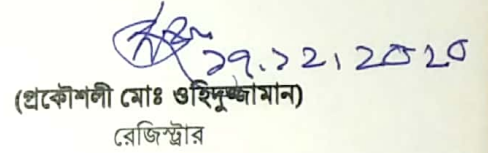 ২৭.১২.২০২০
(প্রকৌশলী মোঃ ওহিদুজ্জামান)
রেজিস্ট্রার